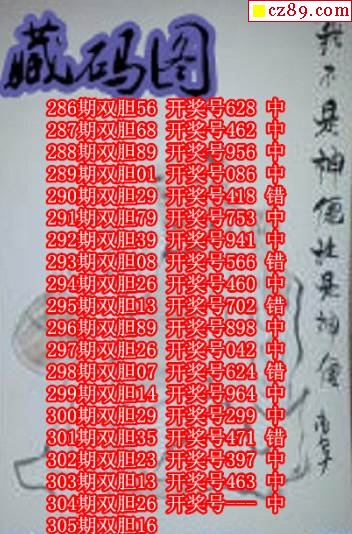 cz89.com
藏码图
286期双胆56 开奖号628 中
287期双胆68 开奖号462 中
288期双胆89 开奖号956 中
289期双胆01 开奖号086 中
290期双胆29 开奖号418 错
291期双胆79 开奖号753 中
292期双胆39 开奖号941 中
293期双胆08 开奖号566 错
294期双胆26 开奖号460 中
295期双胆13 开奖号702 错
296期双胆89 开奖号898 中
297期双胆26 开奖号042 中
298期双胆07 开奖号624 错
299期双胆14 开奖号064 中
300期双胆29 开奖号299 中
301期双胆35 开奖号471 错
302期双胆23 开奖号397 中
303期双胆13 开奖号463 中
304期双胆26 开奖号--- 中
305期双胆16
我不是神
是神